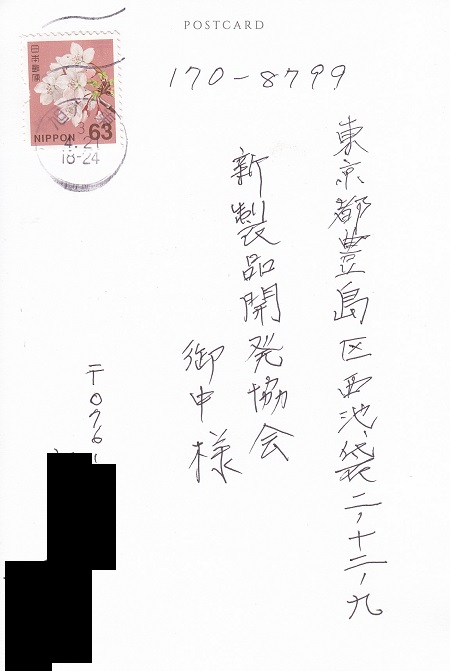 POSTCARD
日本郵便
NIPPON 63
3
4.21
18-24
170-8799
東京都豊島区西池袋二,十二,九
新製品開発協会
御中様
〒076